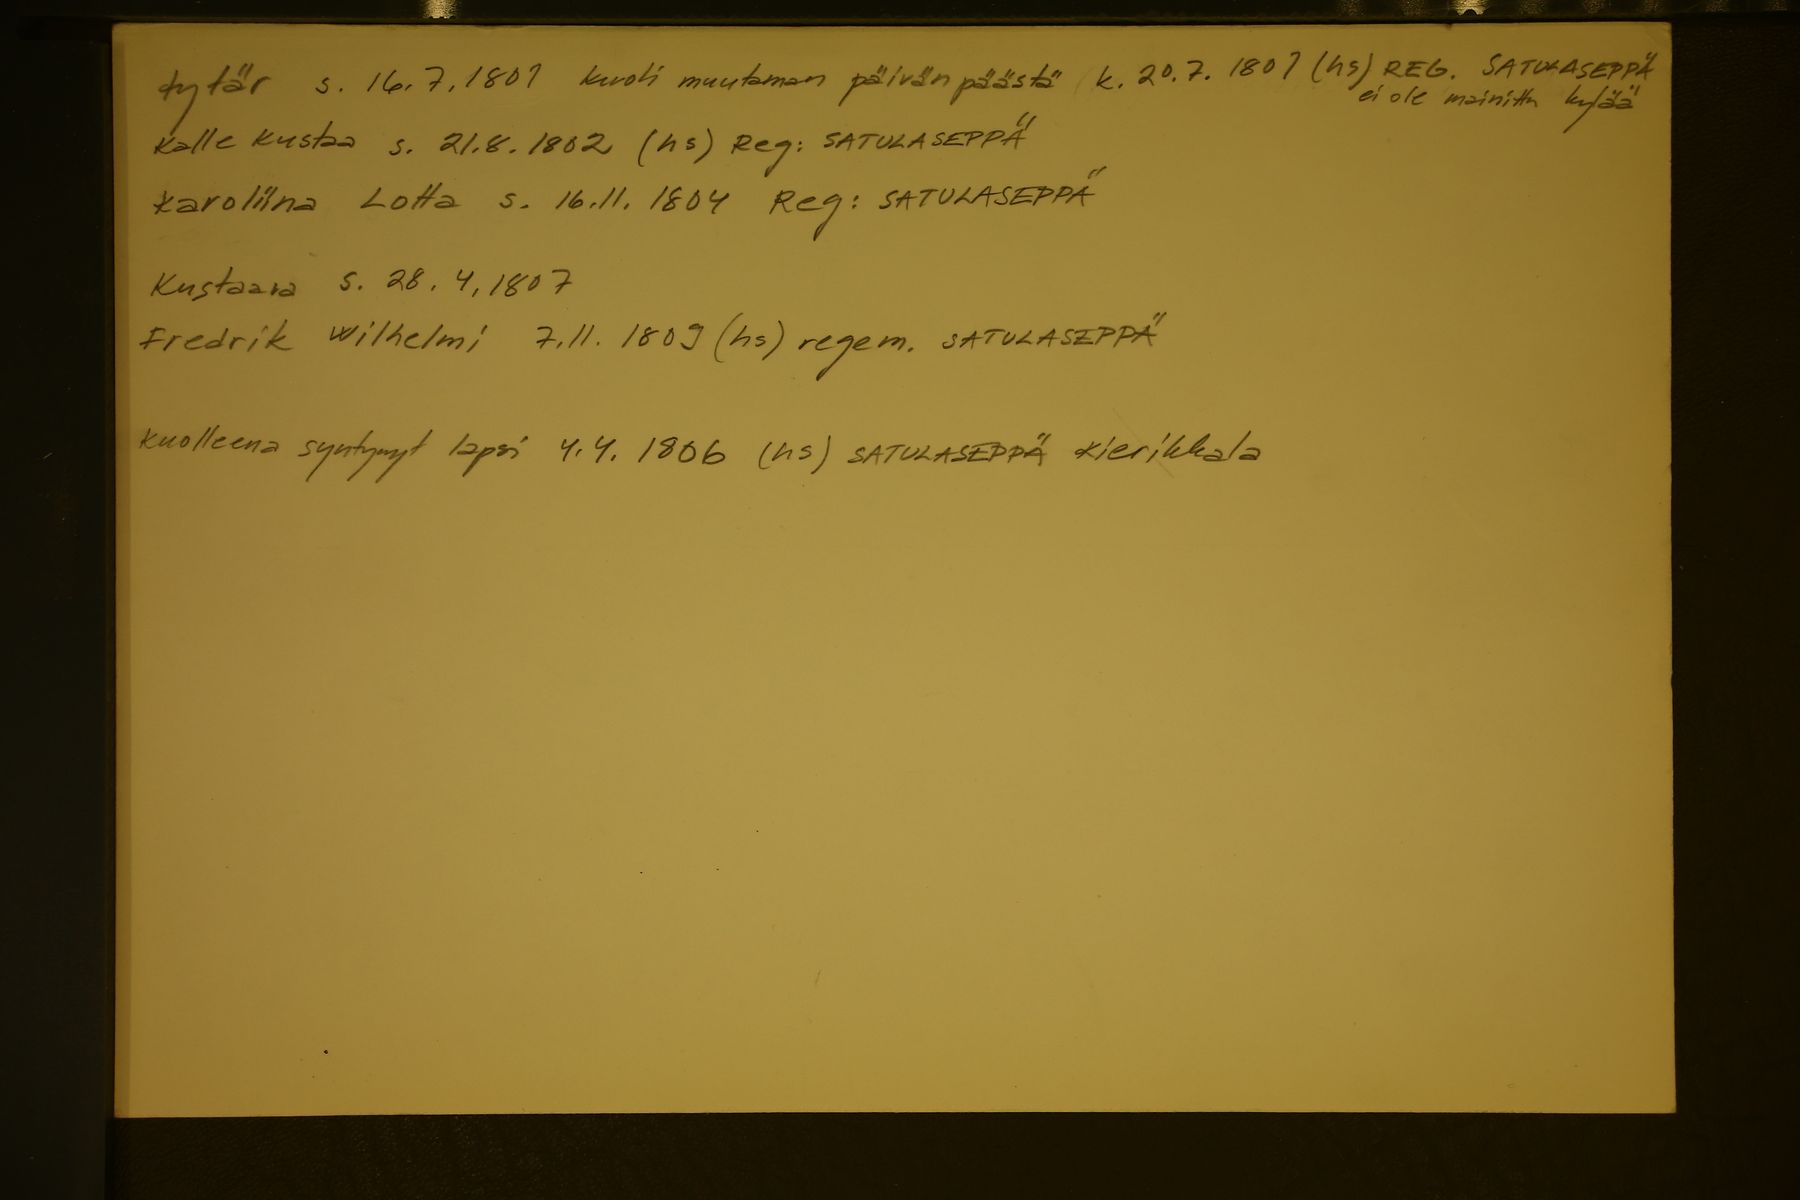 tytär s. 16.7.1801 kuoli muutaman päivän päästä k. 20.7. 1801 (hs) REG. SATULASEPPÄ
ei ole mainittu kylää
Kalle Kustaa s. 21.8.1802 (hs) Reg: SATULASEPPÄ
Karoliina Lotta s. 16.11. 1804 Reg: SATULASEPPÄ
Kustaava s. 28.4.1807
Fredrik Wilhelmi 7.11. 1809 (hs) regem. SATULASEPPÄ
Kuolleena syntynyt lapsi 4.4. 1806 (hs) SATULASEPPÄ Kierikkala